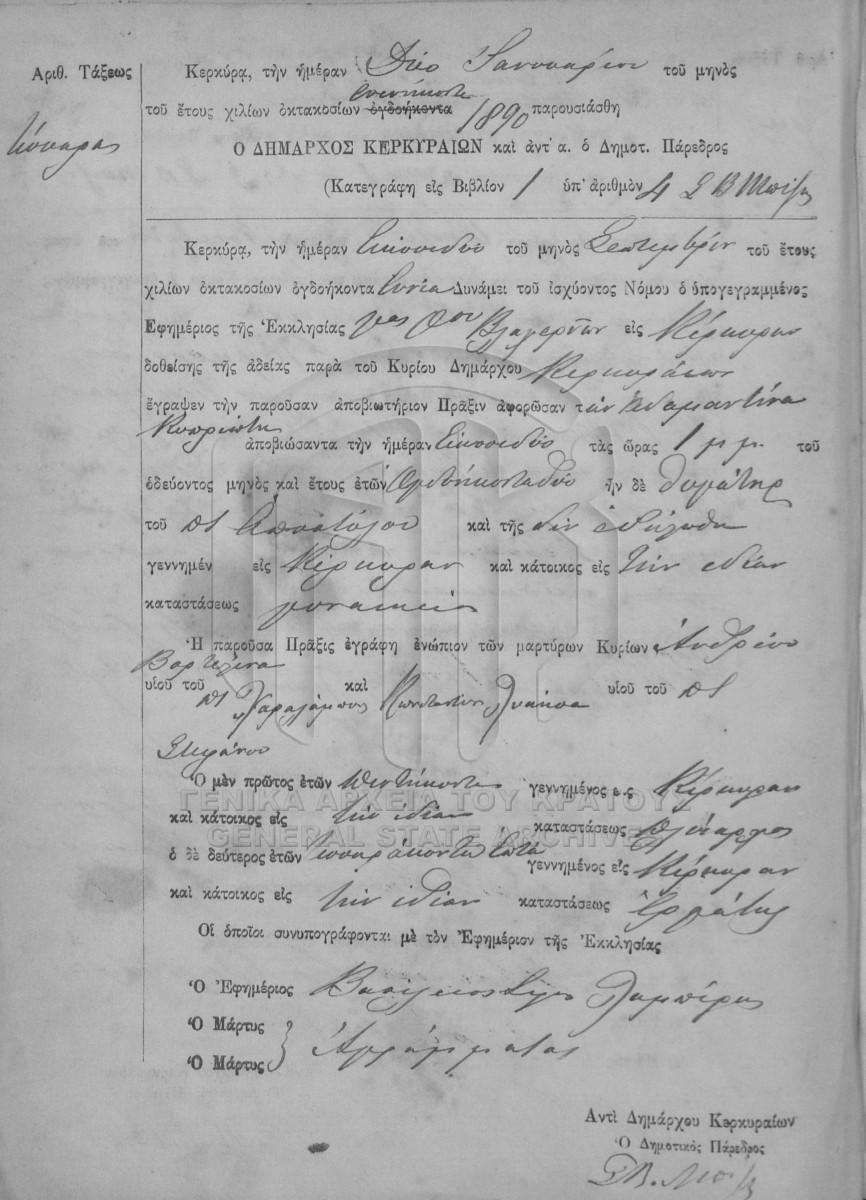 Ἀριθ. Τάξεως
τέσσαρα
Κερκύρα, τὴν ἡμέραν Δύο Ἰαννουαρίου τοῦ μηνὸς
ἐνενήκοντα
τοῦ ἔτους χιλίων ὀκτακοσίων ὀγδοήκοντα 1890 παρουσιάσθη
Ο ΔΗΜΑΡΧΟΣ ΚΕΡΚΥΡΑΙΩΝ καὶ ἀντ' α. ὁ Δημοτ. Πάρεδρος
(Κατεγράφη εἰς Βιβλίον 1 ὑπ' ἀριθμὸν 4
Κερκύρα, τὴν ἡμέραν Εἰκοσιδύο τοῦ μηνὸς Σεπτεμβρίου τοῦ ἔτους
χιλίων ὀκτακοσίων ὀγδοήκοντα ἐννέα Δυνάμει τοῦ ἰσχύοντος Νόμου ὁ ὑπογεγραμμένος
Ἐφημέριος τῆς Ἐκκλησίας Βλαχερνῶν εἰς Κέρκυραν
δοθείσης τῆς ἀδείας παρὰ τοῦ Κυρίου Δημάρχου Κερκυραίων
ἔγραψεν τὴν παροῦσαν ἀποβιωτήριον Πρᾶξιν ἀφορῶσαν τὴν Ἀδαμαντίνα
ἀποβιώσαντα τὴν ἡμέραν Εἰκοσιδύο τὰς ὥρας 1 μ.μ. τοῦ
ὁδεύοντος μηνὸς καὶ ἔτους ἐτῶν Ὀγδοήκονταδύο ἦν δὲ θυγάτηρ
τοῦ πτ Ἀποστόλου καὶ τῆς δὲν ἐδηλώθη
γεννημέν εἰς Κέρκυραν καὶ κάτοικος εἰς τὴν ἰδίαν
καταστάσεως γυναικεία
Ἡ παροῦσα Πρᾶξις ἐγράφη ἐνώπιον τῶν μαρτύρων Κυρίων Ἀνδρέου
υἱοῦ τοῦ πτ Χαραλάμπους καὶ Κωνσταντίνου υἱοῦ τοῦ πτ
Στεφάνου
Ὁ μὲν πρῶτος ἐτῶν πεντήκοντα γεννημένος εἰς Κέρκυραν
καὶ κάτοικος εἰς τὴν ἰδίαν καταστάσεως
ὁ δὲ δεύτερος ἐτῶν τεσσαράκοντα ἑπτά γεννημένος εἰς Κέρκυραν
καὶ κάτοικος εἰς τὴν ἰδίαν καταστάσεως Ἐργάτης
Οἱ ὁποῖοι συνυπογράφονται μὲ τὸν Ἐφημέριον τῆς Ἐκκλησίας
Ὁ Ἐφημέριος Βασίλειος
Ὁ Μάρτυς
Ὁ Μάρτυς } Ἀγράμματοι
Ἀντὶ Δημάρχου Κερκυραίων
Ὁ Δημοτικὸς Πάρεδρος
ΓΕΝΙΚΑ ΑΡΧΕΙΑ ΤΟΥ ΚΡΑΤΟΥΣ
GENERAL STATE ARCHIVES